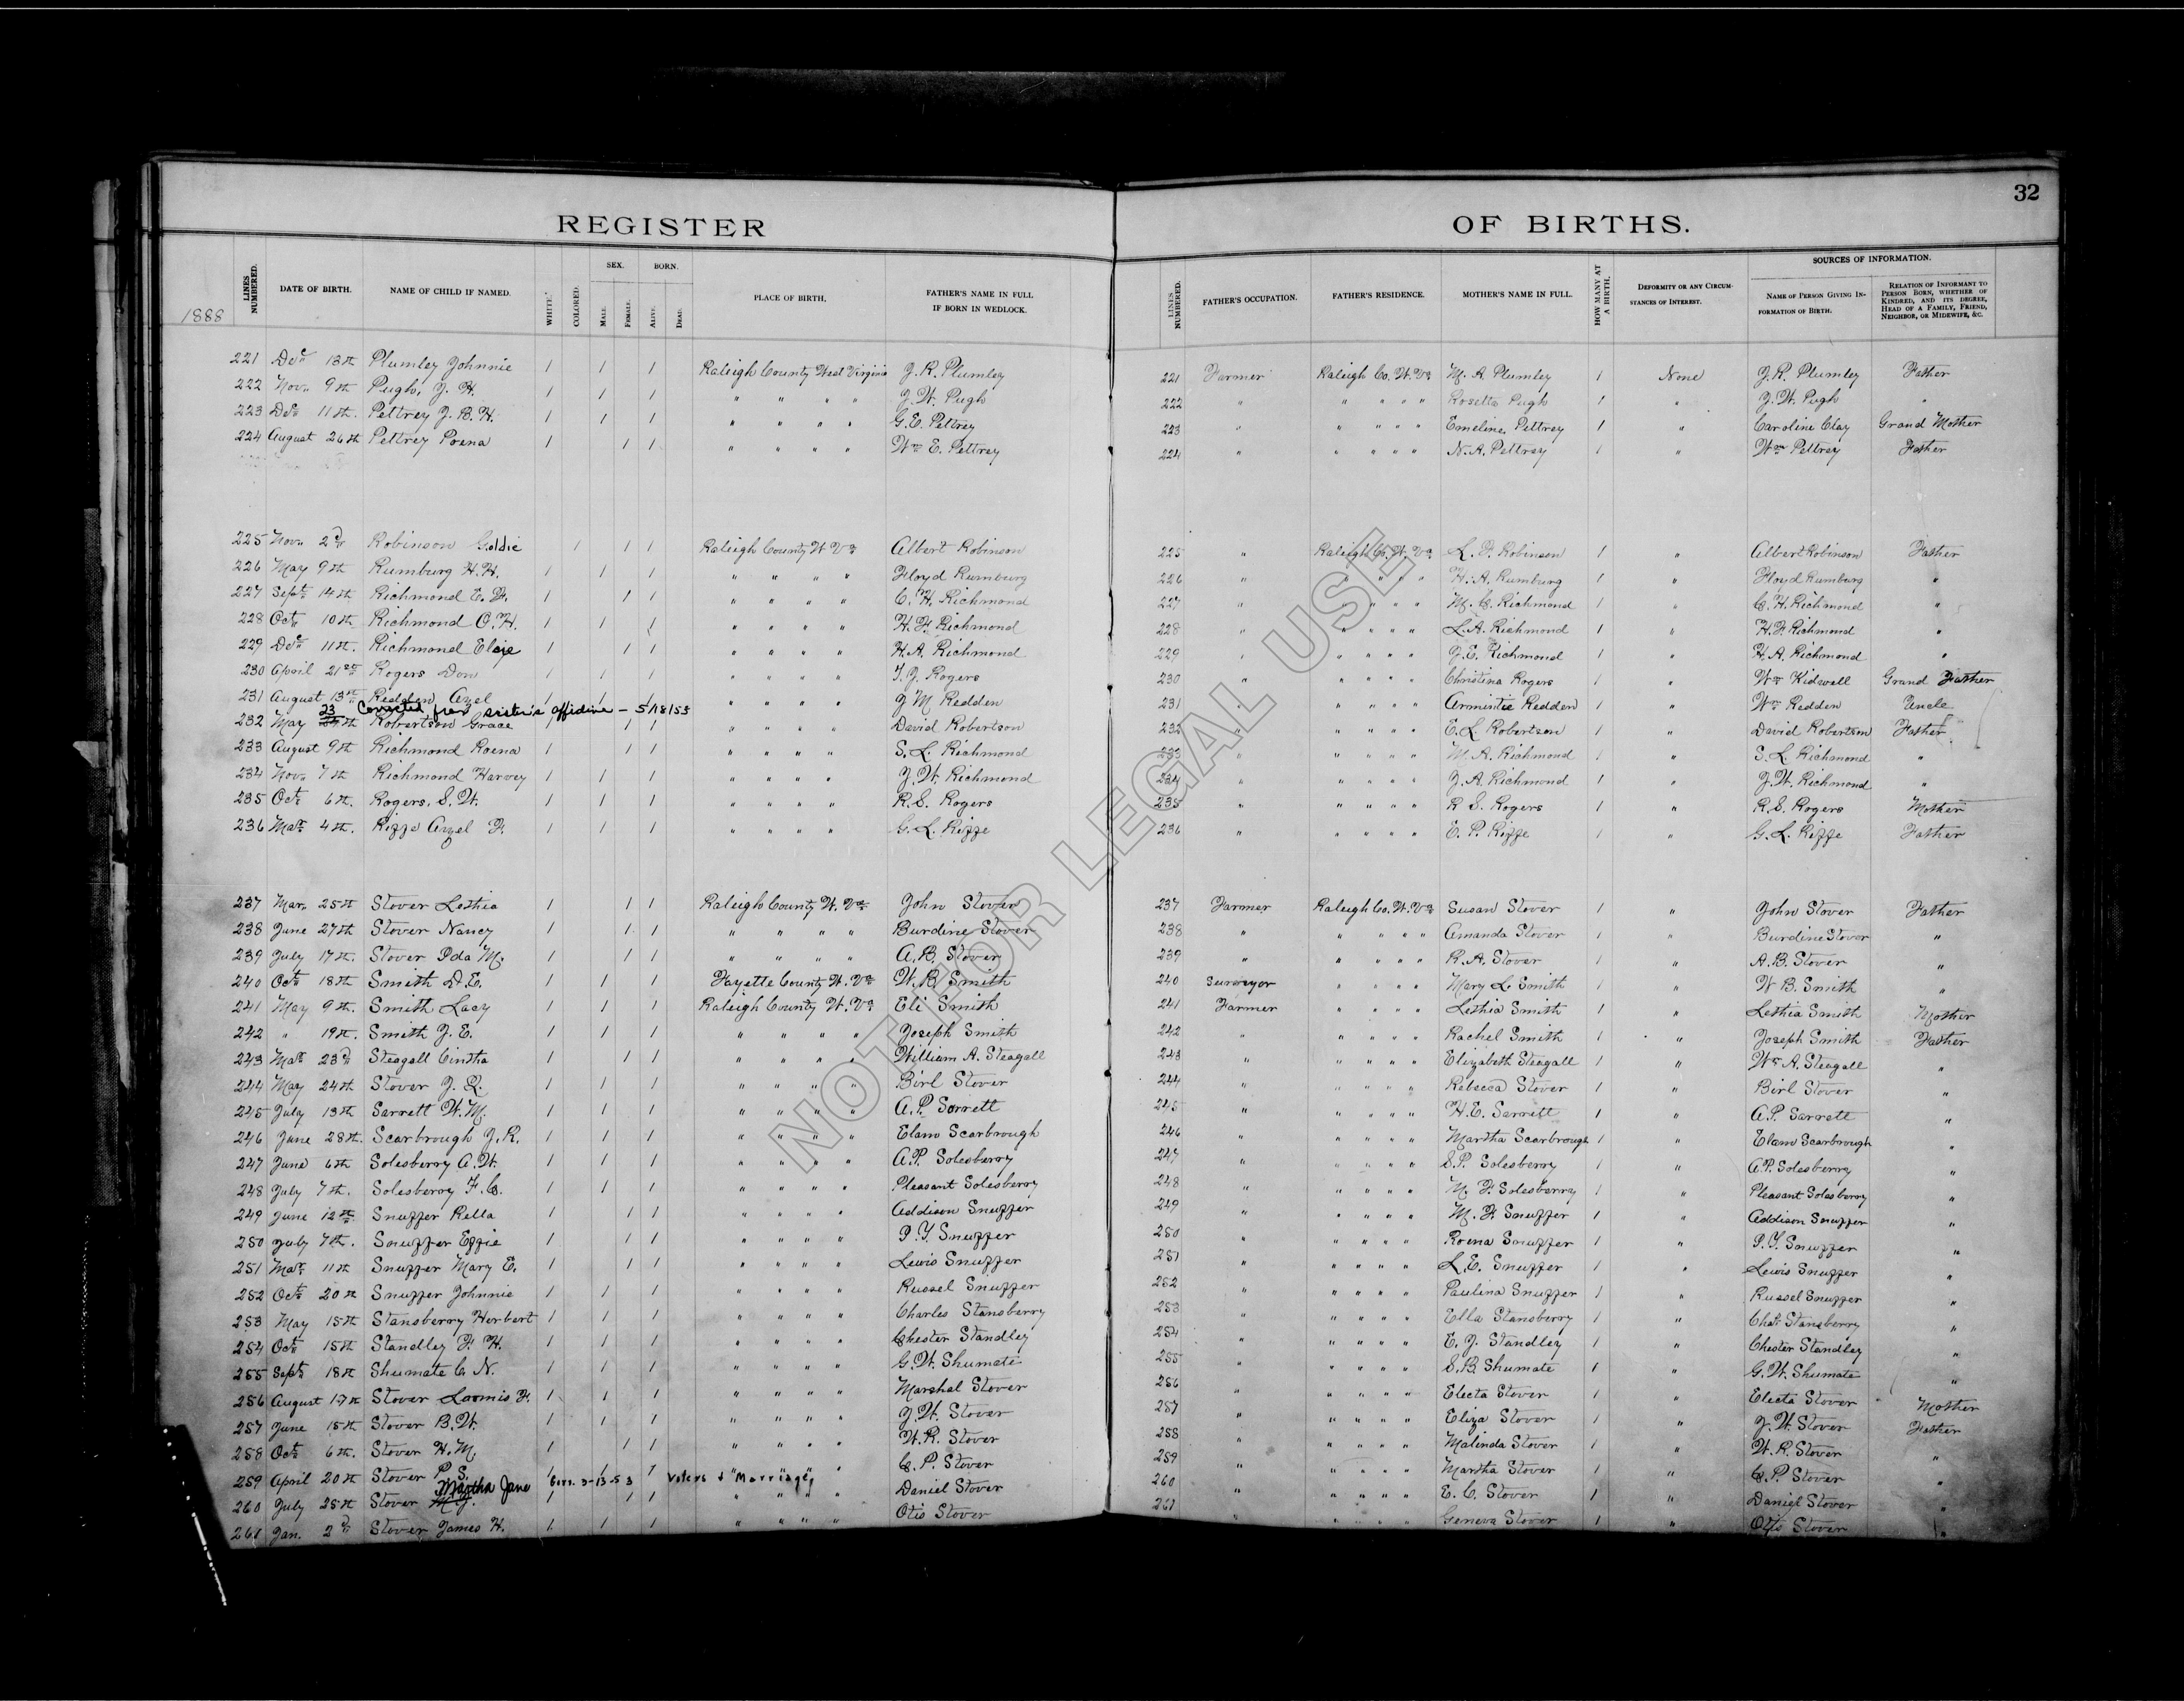 32
REGISTER OF BIRTHS.
1888
LINES NUMBERED. DATE OF BIRTH. NAME OF CHILD IF NAMED. WHITE. COLORED. SEX. Male. Female. BORN. Alive. Dead. PLACE OF BIRTH. FATHER'S NAME IN FULL IF BORN IN WEDLOCK. LINES NUMBERED. FATHER'S OCCUPATION. FATHER'S RESIDENCE. MOTHER'S NAME IN FULL. HOW MANY AT A BIRTH. DEFORMITY OR ANY CIRCUMSTANCES OF INTEREST. SOURCES OF INFORMATION. NAME OF PERSON GIVING INFORMATION OF BIRTH. RELATION OF INFORMANT TO PERSON BORN, WHETHER OF KINDRED, AND ITS DEGREE, HEAD OF A FAMILY, FRIEND, NEIGHBOR, OR MIDWIFE, &C.
221 Dec 13th Plumley Johnnie 1 1 1 Raleigh County West Virginia J. R. Plumley 221 Farmer Raleigh Co. W. Va M. A. Plumley 1 None J. R. Plumley Father
222 Nov. 9th Pugh, J. H. 1 1 1 " " " " J. W. Pugh 222 " " " " " Rosetta Pugh 1 " J. W. Pugh "
223 Dec 11th. Pettrey J. B. H. 1 1 1 " " " " G. E. Pettrey 223 " " " " " Emeline Pettrey 1 " Caroline Clay Grand Mother
224 August 26th Pettrey Roena 1 1 1 " " " " Wm E. Pettrey 224 " " " " " N. A. Pettrey 1 " Wm Pettrey Father
225 Nov. 2d Robinson Goldie 1 1 1 Raleigh County W. Va Albert Robinson 225 " Raleigh Co. W. Va. L. F. Robinson 1 " Albert Robinson Father
226 May 9th Rumburg H. H. 1 1 1 " " " " Floyd Rumburg 226 " " " " " H. A. Rumburg 1 " Floyd Rumburg "
227 Sept 14th Richmond E. F. 1 1 1 " " " " C. H. Richmond 227 " " " " " M. C. Richmond 1 " C. H. Richmond "
228 Oct 10th Richmond O. H. 1 1 1 " " " " H. F. Richmond 228 " " " " " L. A. Richmond 1 " H. F. Richmond "
229 Dec 11th. Richmond 1 1 1 " " " " H. A. Richmond 229 " " " " " J. E. Richmond 1 " H. A. Richmond "
230 April 21st Rogers Don 1 1 1 " " " " T. J. Rogers 230 " " " " " Christina Rogers 1 " Wm Kidwell Grand Father
231 August 13th Redden Azel 1 1 1 " " " " J M Redden 231 " " " " " Armintie Redden 1 " Wm Redden Uncle
23 Corrected from sister's affidavit - 5/18/53
232 May Robertson Grace 1 1 1 " " " " David Robertson 232 " " " " " E. L. Robertson 1 " David Robertson Father
233 August 9th Richmond Roena 1 1 1 " " " " S. L. Richmond 233 " " " " " M. A. Richmond 1 " S. L. Richmond "
234 Nov. 7th Richmond Harvey 1 1 1 " " " " J. W. Richmond 234 " " " " " J. A. Richmond 1 " J. W. Richmond "
235 Oct 6th. Rogers, S. W. 1 1 1 " " " " R. S. Rogers 235 " " " " " R S. Rogers 1 " R. S. Rogers Mother
236 Mar 4th. Riffe Azel F. 1 1 1 " " " " G. L. Riffe 236 " " " " " E. P. Riffe 1 " G. L. Riffe Father
237 Mar. 25th Stover Lethia 1 1 1 Raleigh County W. Va John Stover 237 Farmer Raleigh Co. W. Va Susan Stover 1 " John Stover Father
238 June 27th Stover Nancy 1 1 1 " " " " Burdine Stover 238 " " " " " Amanda Stover 1 " Burdine Stover "
239 July 17th. Stover Ida M. 1 1 1 " " " " A. B. Stover 239 " " " " " R. A. Stover 1 " A. B. Stover "
240 Oct 18th Smith D. E. 1 1 1 Fayette County W. Va W. B. Smith 240 Surveyor " " " " Mary L. Smith 1 " W B. Smith "
241 May 9th. Smith Lacy 1 1 1 Raleigh County W. Va Eli Smith 241 Farmer " " " " Lethia Smith 1 " Lethia Smith Mother
242 " 19th. Smith J. E. 1 1 1 " " " " Joseph Smith 242 " " " " " Rachel Smith 1 " Joseph Smith Father
243 Mar 23d Steagall Cintha 1 1 1 " " " " William A. Steagall 243 " " " " " Elizabeth Steagall 1 " Wm A. Steagall "
244 May 24th Stover 1 1 1 " " " " Birl Stover 244 " " " " " Rebecca Stover 1 " Birl Stover "
245 July 13th Sarrett W. M. 1 1 1 " " " " A. P. Sarrett 245 " " " " " H. E. Sarrett 1 " A. P. Sarrett "
246 June 28th. Scarbrough J. R. 1 1 1 " " " " Elam Scarbrough 246 " " " " " Martha Scarbrough 1 " Elam Scarbrough "
247 June 6th Solesberry A. W. 1 1 1 " " " " A. P. Solesberry 247 " " " " " S. P. Solesberry 1 " A. P. Solesberry "
248 July 7th. Solesberry F. C. 1 1 1 " " " " Pleasant Solesberry 248 " " " " " M. F. Solesberry 1 " Pleasant Solesberry "
249 June 12th Snuffer Rella 1 1 1 " " " " Addison Snuffer 249 " " " " " M. F. Snuffer 1 " Addison Snuffer "
250 July 7th. Snuffer Effie 1 1 1 " " " " P. Y. Snuffer 250 " " " " " Roena Snuffer 1 " P. Y. Snuffer "
251 Mar 11th Snuffer Mary E. 1 1 1 " " " " Lewis Snuffer 251 " " " " " L. E. Snuffer 1 " Lewis Snuffer "
252 Oct 20th Snuffer Johnnie 1 1 1 " " " " Russel Snuffer 252 " " " " " Paulina Snuffer 1 " Russel Snuffer "
253 May 15th Stansberry Herbert 1 1 1 " " " " Charles Stansberry 253 " " " " " Ella Stansberry 1 " Chas Stansberry "
254 Oct 15th Standley F. H. 1 1 1 " " " " Chester Standley 254 " " " " " E. J. Standley 1 " Chester Standley "
255 Sept 18th Shumate C. N. 1 1 1 " " " " G. W. Shumate 255 " " " " " S. B. Shumate 1 " G. W. Shumate "
256 August 17th Stover Loomis F. 1 1 1 " " " " Marshal Stover 256 " " " " " Electa Stover 1 " Electa Stover Mother
257 June 15th Stover B. W. 1 1 1 " " " " J. W. Stover 257 " " " " " Eliza Stover 1 " J. W. Stover Father
258 Oct 6th. Stover H. M. 1 1 1 " " " " W. R. Stover 258 " " " " " Malinda Stover 1 " W. R. Stover "
259 April 20th Stover P. S. 1 1 1 " " " " C. P. Stover 259 " " " " " Martha Stover 1 " C. P. Stover "
Martha Jane Corr. 3-13-53 Voters & Marriage
260 July 25th Stover M. J. 1 1 1 " " " " Daniel Stover 260 " " " " " E. C. Stover 1 " Daniel Stover "
261 Jan. 2d Stover James H. 1 1 1 " " " " Otis Stover 261 " " " " " Geneva Stover 1 " Otis Stover "
NOT FOR LEGAL USE